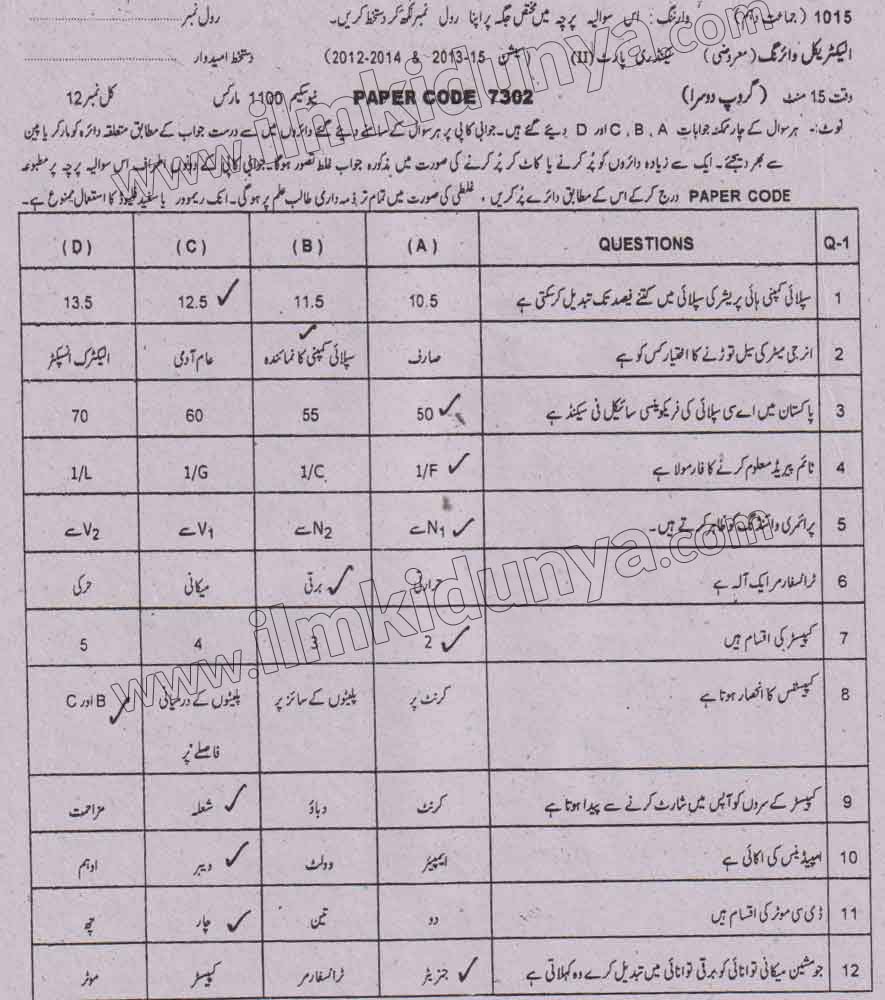 1015 (جماعت دہم) وارننگ: اس سوالیہ پرچہ میں مختص جگہ پر اپنا رول نمبر لکھ کر دستخط کریں۔ رول نمبر
الیکٹریکل وائرنگ (معروضی) سیکنڈری پارٹ (II) (سیشن 15-2013 & 2014-2012) دستخط امیدوار
وقت 15 منٹ (گروپ دوسرا) PAPER CODE 7302 نیو سکیم 1100 مارکس کل نمبر 12
نوٹ:- ہر سوال کے چار ممکنہ جوابات C, B, A اور D دیئے گئے ہیں۔ جوابی کاپی پر ہر سوال کے سامنے دیئے گئے دائروں میں سے درست جواب کے مطابق متعلقہ دائرہ کو مارکر یا پین
سے بھر دیجئے۔ ایک سے زیادہ دائروں کو پُر کرنے یا کاٹ کر پُر کرنے کی صورت میں مذکورہ جواب غلط تصور ہوگا۔ جوابی کاپی کے دونوں اطراف اس سوالیہ پرچہ پر مطبوعہ
PAPER CODE درج کر کے اس کے مطابق دائرے پُر کریں، غلطی کی صورت میں تمام تر ذمہ داری طالب علم پر ہوگی۔ انک ریموور یا سفید فلیوڈ کا استعمال ممنوع ہے۔
Q-1 QUESTIONS (A) (B) (C) (D)
1 سپلائی کمپنی ہائی پریشر کی سپلائی میں کتنے فیصد تک تبدیل کر سکتی ہے 10.5 11.5 12.5 13.5
2 انرجی میٹر کی سیل توڑنے کا اختیار کس کو ہے صارف سپلائی کمپنی کا نمائندہ عام آدمی الیکٹرک انسپکٹر
3 پاکستان میں اے سی سپلائی کی فریکوینسی سائیکل فی سیکنڈ ہے 50 55 60 70
4 ٹائم پیریڈ معلوم کرنے کا فارمولا ہے 1/F 1/C 1/G 1/L
5 پرائمری وائنڈنگ کو ظاہر کرتے ہیں۔ N1 سے N2 سے V1 سے V2 سے
6 ٹرانسفارمر ایک آلہ ہے حرارتی برقی میکانی حرکی
7 کپیسٹر کی اقسام ہیں 2 3 4 5
8 کپیسٹنس کا انحصار ہوتا ہے کرنٹ پر پلیٹوں کے سائز پر پلیٹوں کے درمیانی فاصلے پر B اور C
9 کپیسٹر کے سروں کو آپس میں شارٹ کرنے سے پیدا ہوتا ہے کرنٹ دباؤ شعلہ مزاحمت
10 امپیڈنس کی اکائی ہے ایمپیئر وولٹ ویبر اوہم
11 ڈی سی موٹر کی اقسام ہیں دو تین چار چھ
12 جو مشین میکانی توانائی کو برقی توانائی میں تبدیل کرے وہ کہلاتی ہے جنریٹر ٹرانسفارمر کپیسٹر موٹر
www.ilmkidunya.com
www.ilmkidunya.com
www.ilmkidunya.com